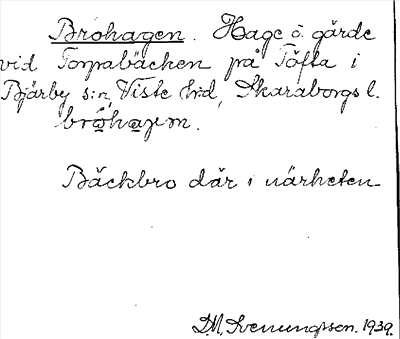 Brohagen. Hage o. gärde
vid Torpabäcken på Töfta i
Bjärby s:n, Viste h:d, Skaraborgs l.
Bäckbro där i närheten
D.M. Svenungsson. 1939.